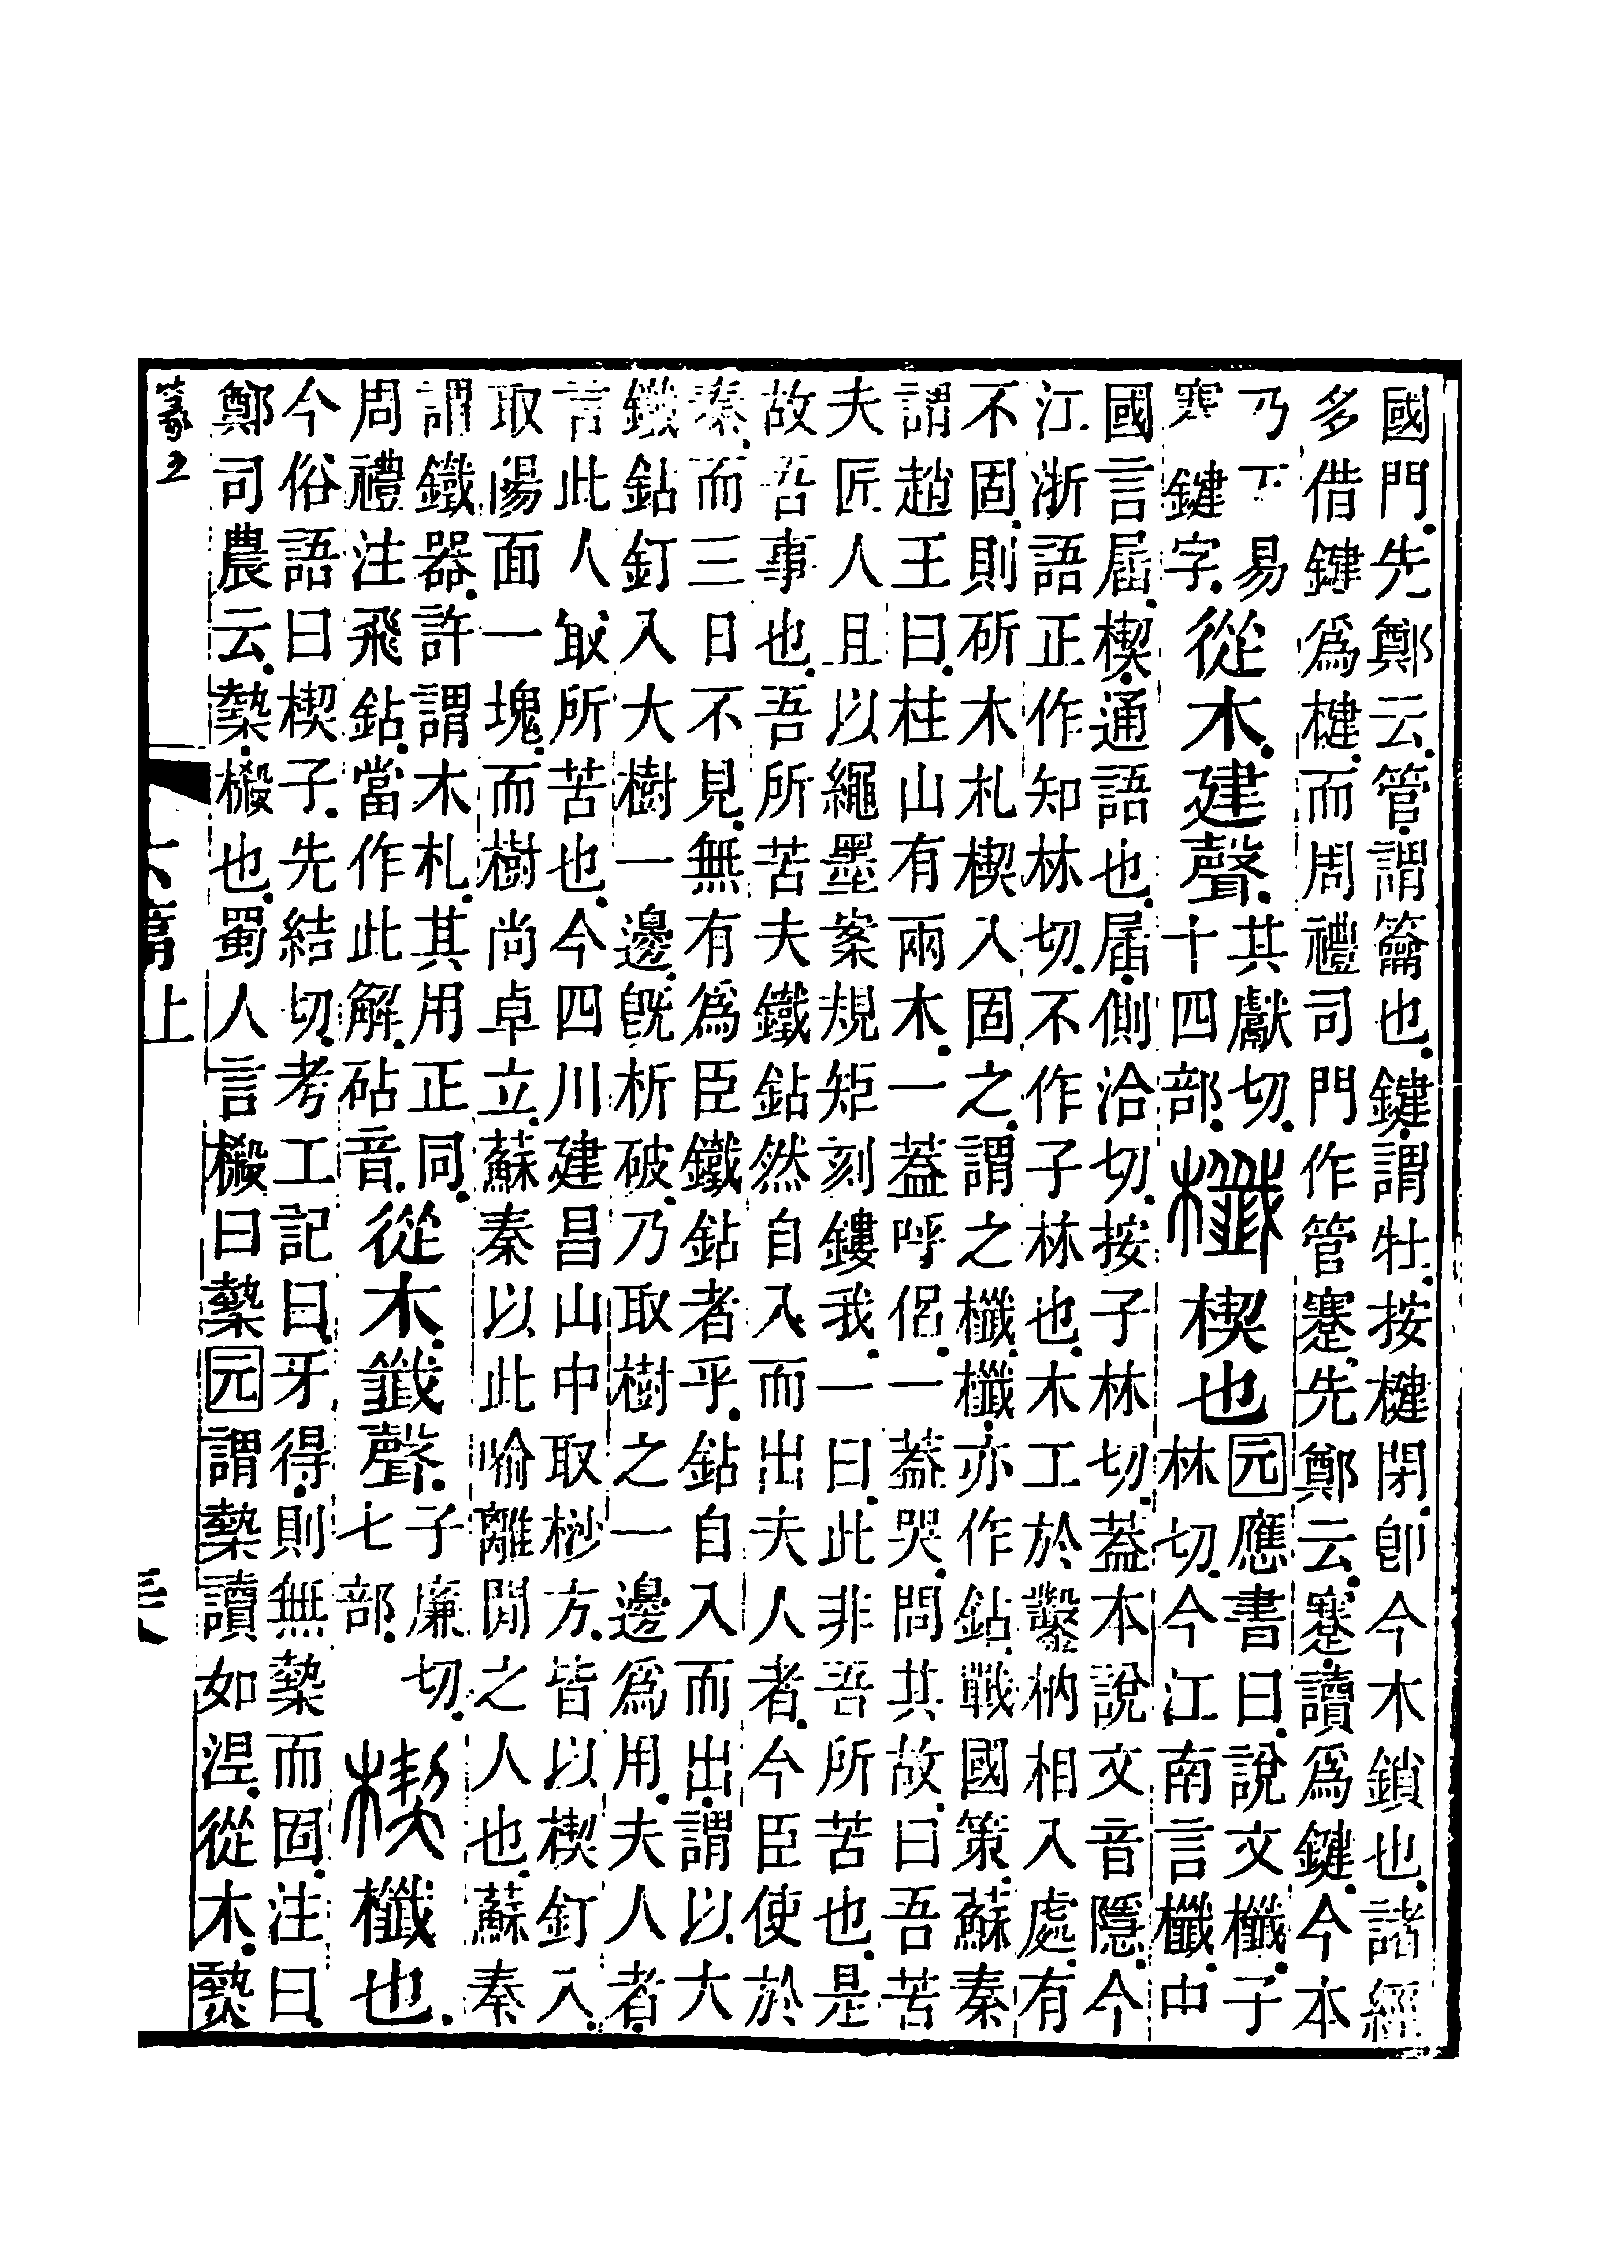 國門先鄭云管謂籥也鍵謂牡按楗閉卽今木鎖也諸經
多借鍵爲楗而周禮司門作管蹇先鄭云蹇讀爲鍵今本
乃下易
蹇鍵字
從木建聲
其獻切
十四部
櫼
楔也
元應書曰說文櫼子
林切今江南言櫼中
國言屆楔通語也屆側洽切按子林切蓋本說文音隱今
江浙語正作知林切不作子林也木工於鑿枘相入處有
不固則斫木札楔入固之謂之櫼櫼亦作鉆戰國策蘇秦
謂趙王曰柱山有兩木一蓋呼侶一蓋哭問其故曰吾苦
夫匠人且以繩墨案規矩刻鏤我一曰此非吾所苦也是
故吾事也吾所苦夫鐵鉆然自入而出夫人者今臣使於
秦而三日不見無有爲臣鐵鉆者乎鉆自入而出謂以大
鐵鉆釘入大樹一邊旣析破乃取樹之一邊爲用夫人者
言此人取所苦也今四川建昌山中取桫方皆以楔釘入
取陽面一塊而樹尚卓立蘇秦以此喻離閒之人也蘇秦
謂鐵器許謂木札其用正同
周禮注飛鉆當作此解砧音
從木韱聲
子廉切
七部
楔
櫼也
今俗語曰楔子先結切考工記曰牙得則無槷而固注曰
鄭司農云槷樧也蜀人言樧曰槷元謂槷讀如涅從木埶
篆五
六篇上